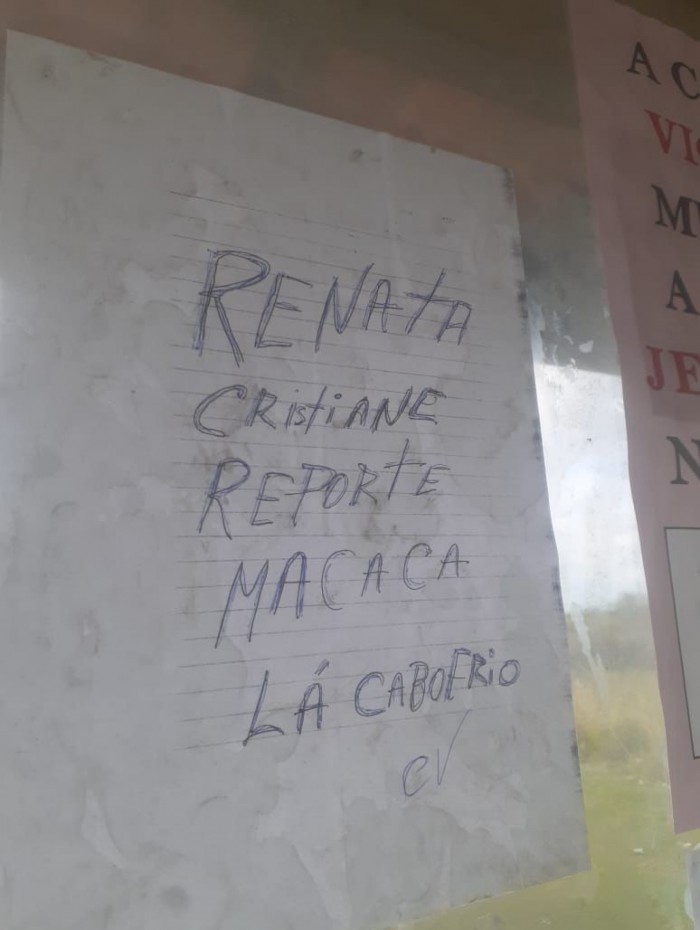 RENATA
CRistiANE
REPORTE
MACACA
LÁ CABOFRiO
CV
A C
VI
M
A
JE
N